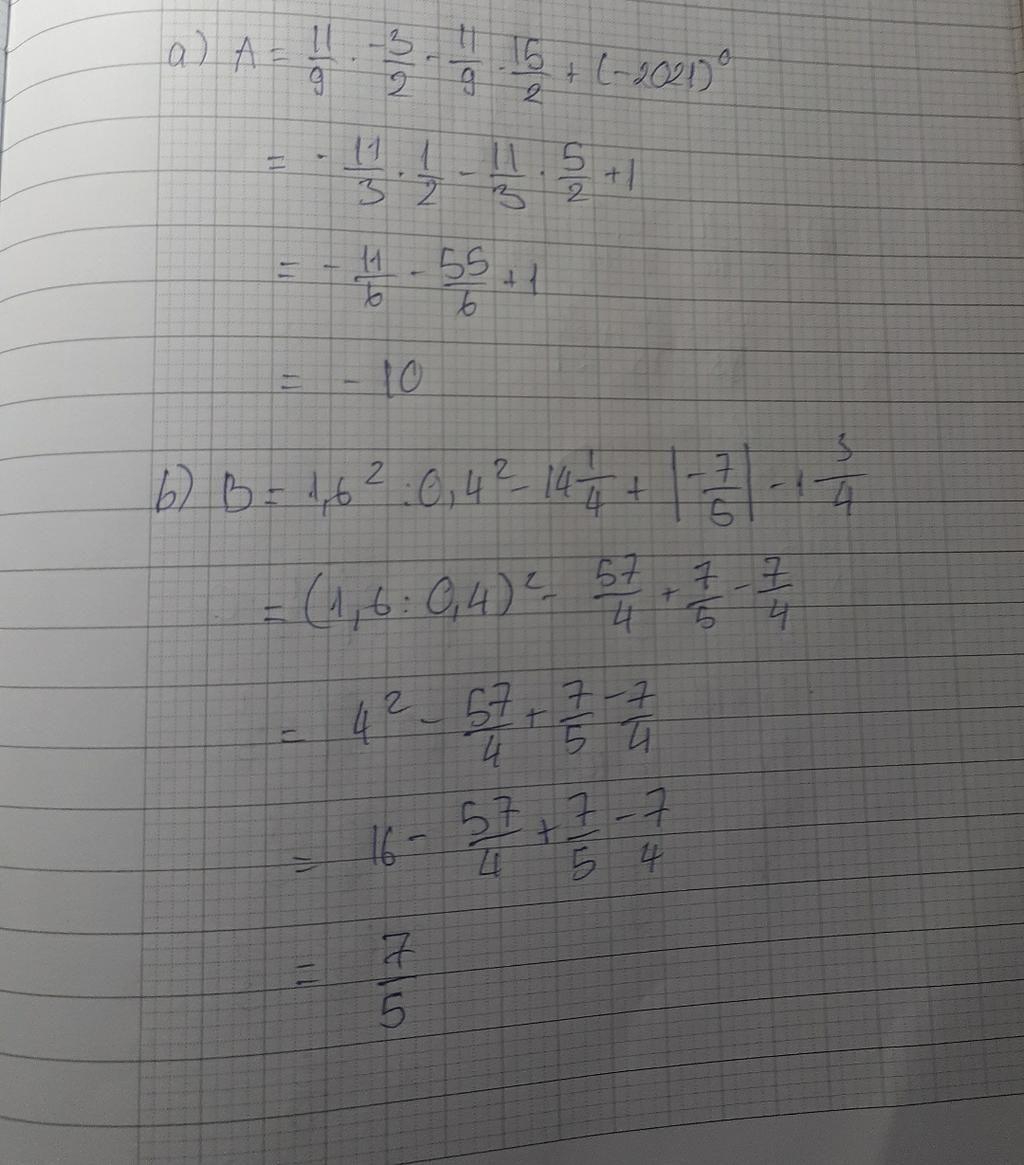 a) A = 11/9 . -3/2 - 11/9 . 15/2 + (-2021)⁰
= - 11/3 . 1/2 - 11/3 . 5/2 + 1
= - 11/6 - 55/6 + 1
= - 10
b) B = 1,6² : 0,4² - 14 1/4 + |-7/5| - 1 3/4
= (1,6 : 0,4)² - 57/4 + 7/5 - 7/4
= 4² - 57/4 + 7/5 - 7/4
= 16 - 57/4 + 7/5 - 7/4
= 7/5